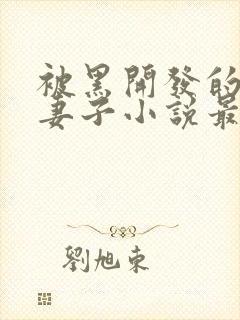 被黑開發的
妻子小說最
劉旭東